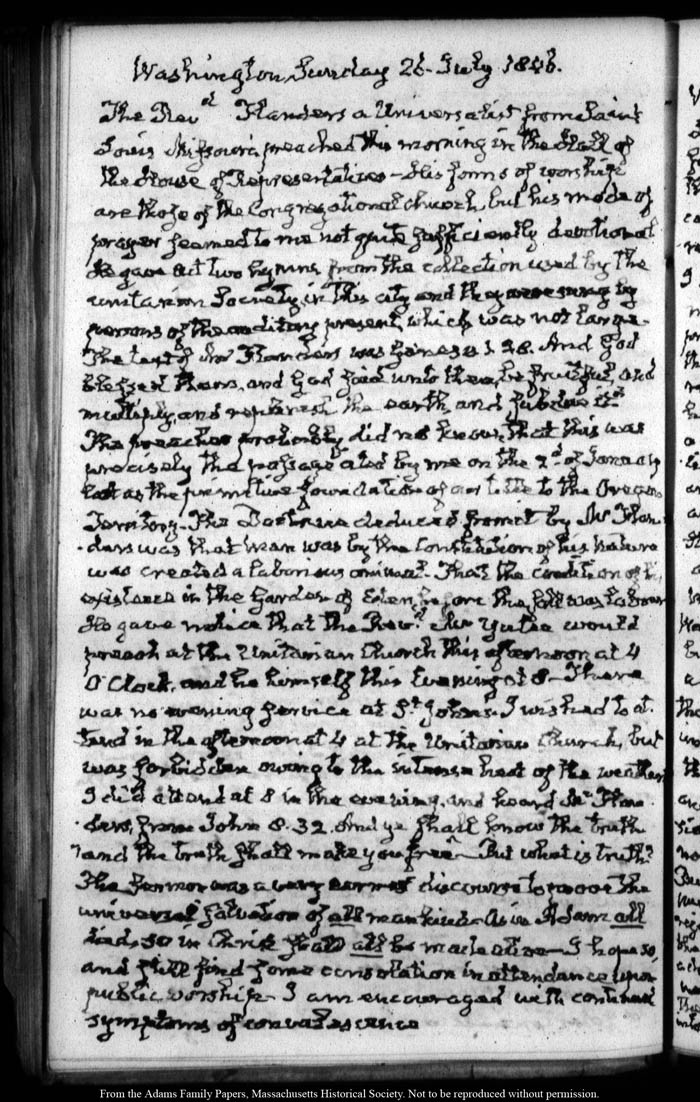 Washington, Sunday 26. July 1846.
The Rev.d Flanders a Universalist from Saint
Louis Missouri, preached this morning in the Hall of
the House of Representatives — His forms of worship
are those of the Congregational church, but his mode of
prayer seemed to me not quite sufficiently devotional
He gave out two hymns from the collection used by the
unitarian Society in this city and they were sung by
persons of the auditory present, which was not large.
The text of Mr Flanders was Genesis 1. 28. And God
blessed them, and God said unto them, be fruitful, and
multiply, and replenish the earth, and subdue it.
The preacher probably did not know, that this was
precisely the passage cited by me on the 2.d of January
last as the primitive foundation of our title to the Oregon
Territory. The Doctrine deduced from it by Mr Flan-
-ders was that man was by the Constitution of his nature
was created a laborious animal. That the condition of his
existence in the Garden of Eden, before the fall was to labour
He gave notice that the Rev.d Mr Yulee would
preach at the Unitarian Church this afternoon at 4
O'Clock, and he himself this Evening at 8 — There
was no evening service at St. John's. I wished to at-
tend in the afternoon at 4 at the Unitarian Church, but
was forbidden owing to the intense heat of the weather
I did attend at 8 in the evening, and heard Mr Flan-
-ders, from John 8. 32. And ye shall know the truth
and the truth shall make you free — But what is truth?
The sermon was a very earnest discourse to prove the
universal salvation of all mankind — As in Adam all
died, so in Christ shall all be made alive — I hope so,
and still find some consolation in attendance upon
public worship. I am encouraged with continued
symptoms of convalescence
From the Adams Family Papers, Massachusetts Historical Society. Not to be reproduced without permission.